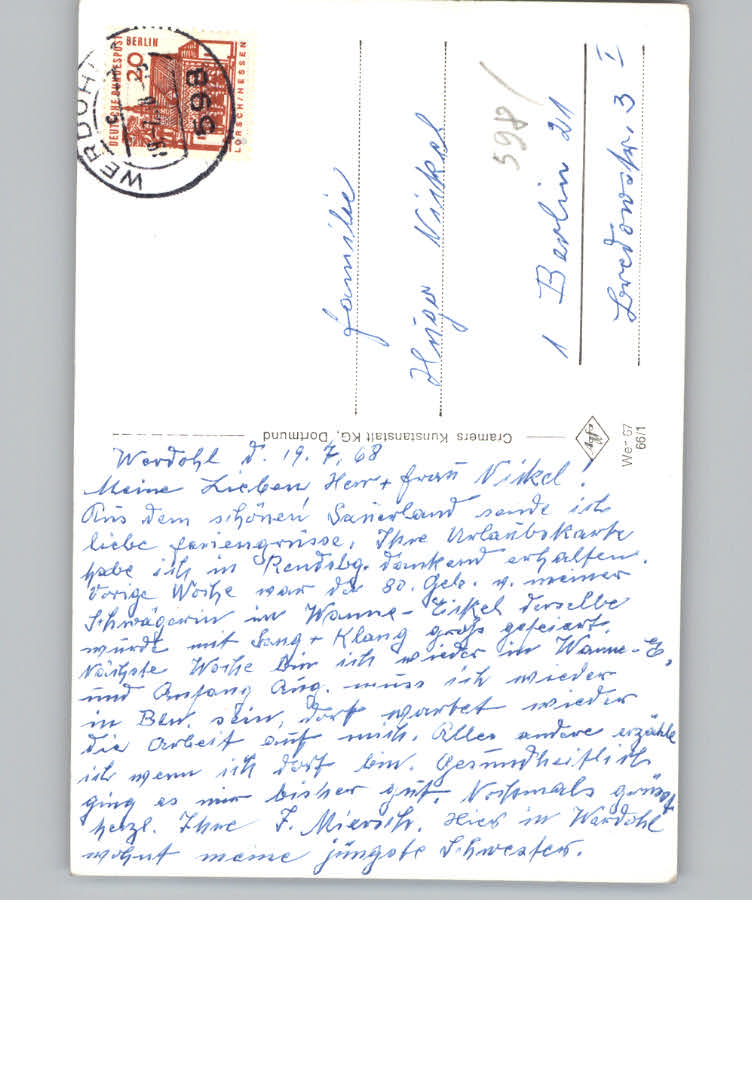 Werdohl d. 19.7.68
Meine Lieben Herr + Frau Nickel!
Aus dem schönen Sauerland sende ich
liebe Feriengrüsse. Ihre Urlaubskarte
habe ich in Rendsbg. dankend erhalten.
Vorige Woche war der 80. Geb. v. meiner
Schwägerin in Wanne-Eickel derselbe
wurde mit Sang + Klang groß gefeiert.
Nächste Woche bin ich wieder in Wanne-E,
und Anfang Aug. muss ich wieder
in Bln. sein, dort wartet wieder
die Arbeit auf mich. Alles andere erzähle
ich wenn ich dort bin. Gesundheitlich
ging es mir bisher gut. Nochmals gegrüsst
herzl. Ihre F. Miersch. Hier in Werdohl
wohnt meine jüngste Schwester.
Familie
Hugo Nickel
1 Berlin 21
Bredowstr. 3 I
598/
DEUTSCHE BUNDESPOST BERLIN
20
LORSCH/HESSEN
WERDOHL
598
Cramers Kunstanstalt KG, Dortmund
We- 67
66/1